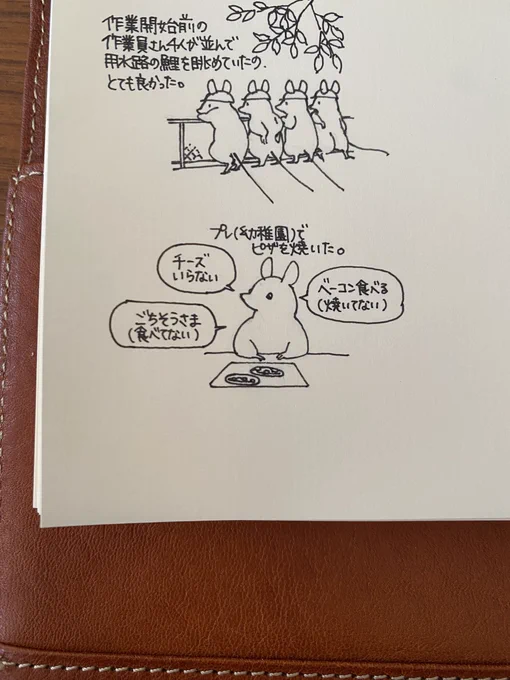 作業開始前の
作業員さん4人が並んで
用水路の鯉を眺めていたの、
とても良かった。
プレ(幼稚園)で
ピザを焼いた。
チーズ
いらない
ベーコン食べる
(焼いてない)
ごちそうさま
(食べてない)